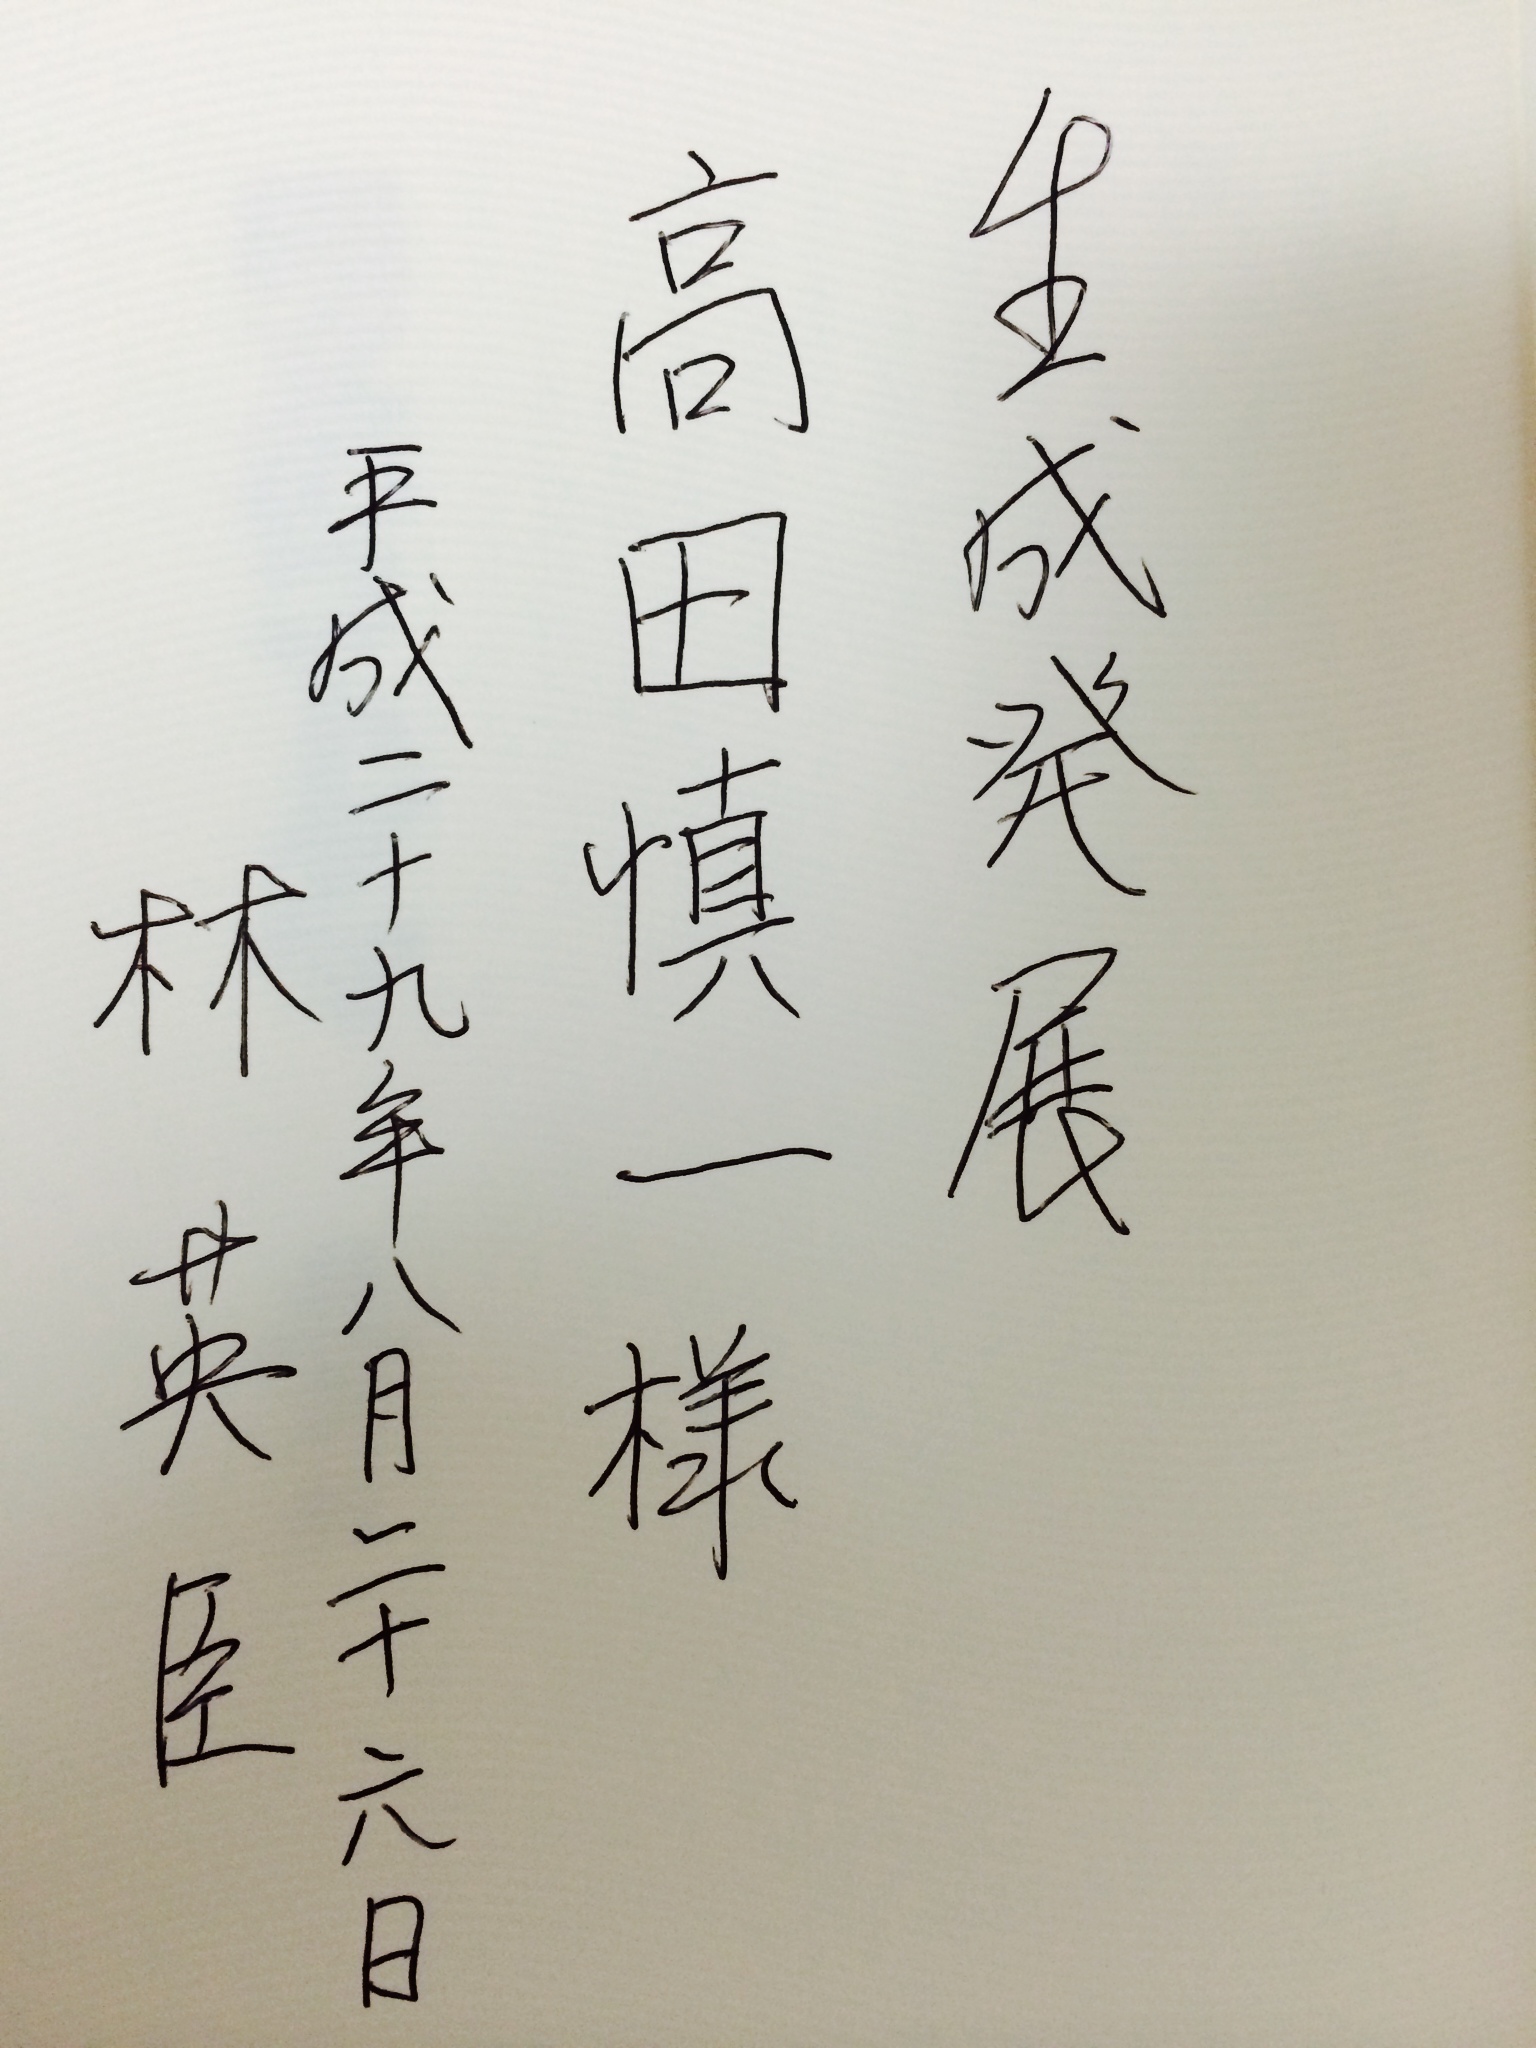 生成発展
高田慎一様
平成二十九年八月二十六日
林英臣